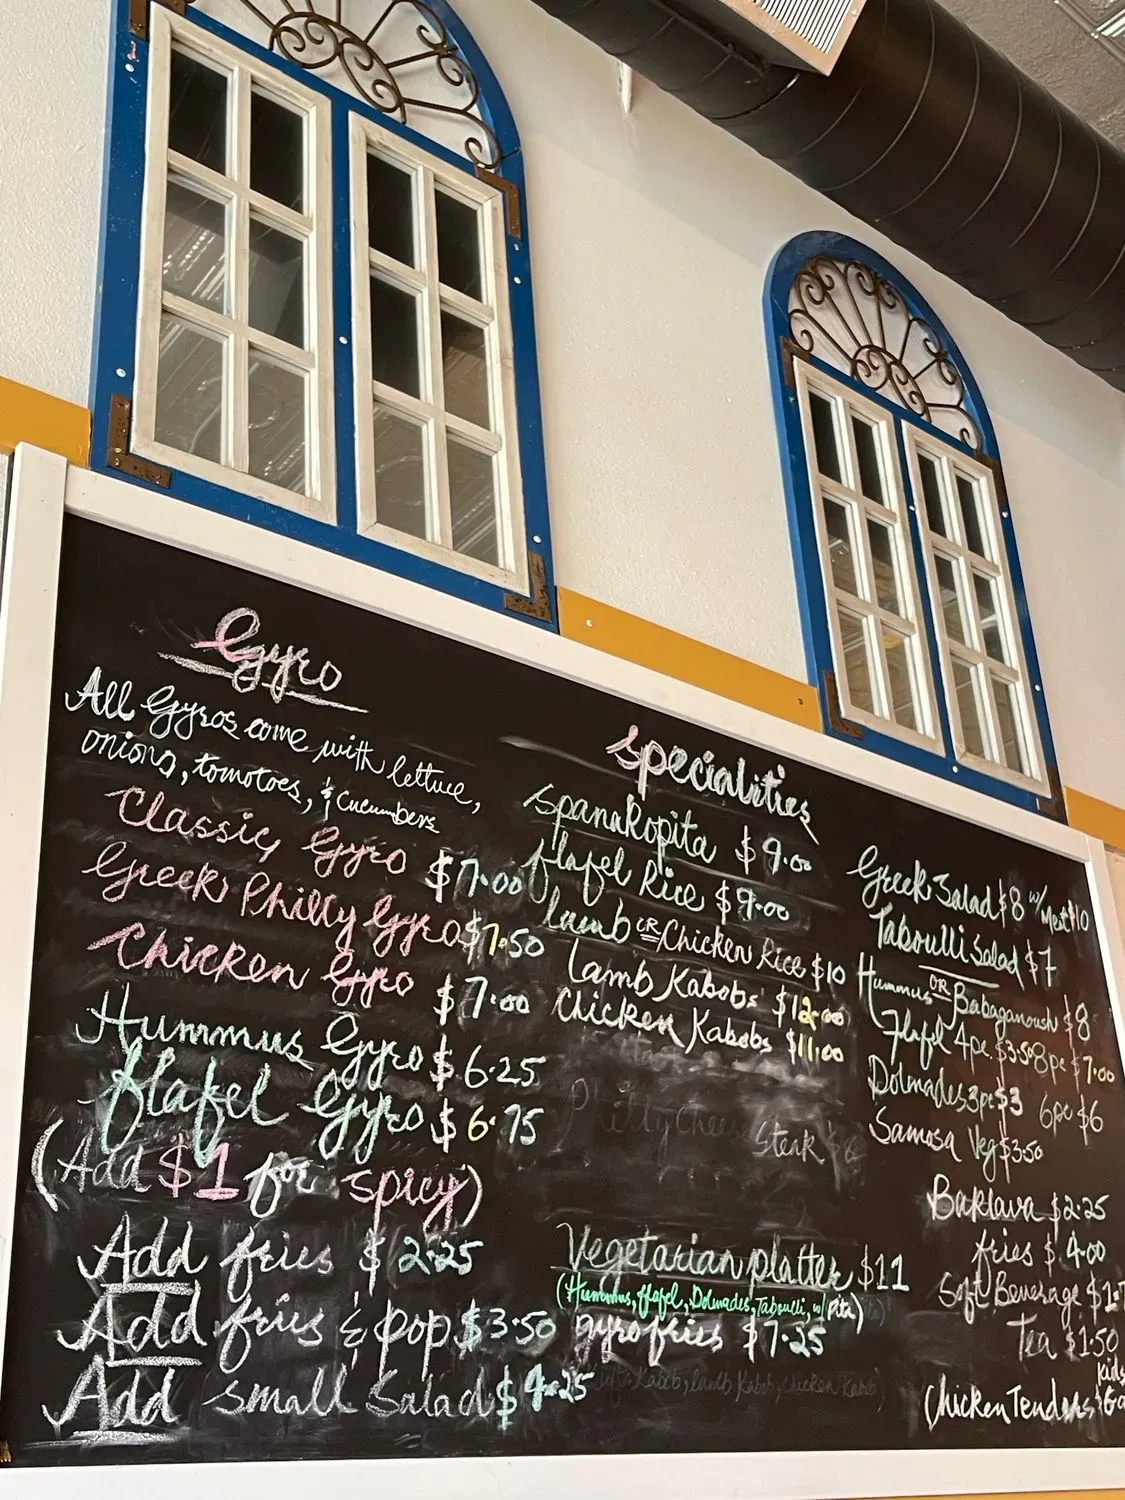 Gyro
All Gyros come with lettuce,
onions, tomotoes, & cucumbers
Classic Gyro $7.00
Greek Philly Gyro $7.50
Chicken Gyro $7.00
Hummus Gyro $6.25
flafel Gyro $6.75
(Add $1 for spicy)
Add fries $2.25
Add fries & pop $3.50
Add small Salad $4.25
Specialities
Spanakopita $9.00
flafel Rice $9.00
lamb OR Chicken Rice $10
Lamb Kabobs $12.00
Chicken Kabobs $11.00
Philly Cheese
Steak
Vegetarian platter $11
(Hummus, flafel, Dolmades, Taboulli, w/ Pita)
gyro fries $7.25
Kabob, lamb Kabob, chicken Kabob)
Greek Salad $8 w/ Meat $10
Taboulli Salad $7
Hummus OR Babaganoush $8
flafel 4pc. $3.50 8pc $7.00
Dolmades 3pc $3 6pc $6
Samosa Veg $3.50
Baklava $2.25
fries $4.00
Soft Beverage $1.
Tea $1.50
Kids
Chicken Tenders